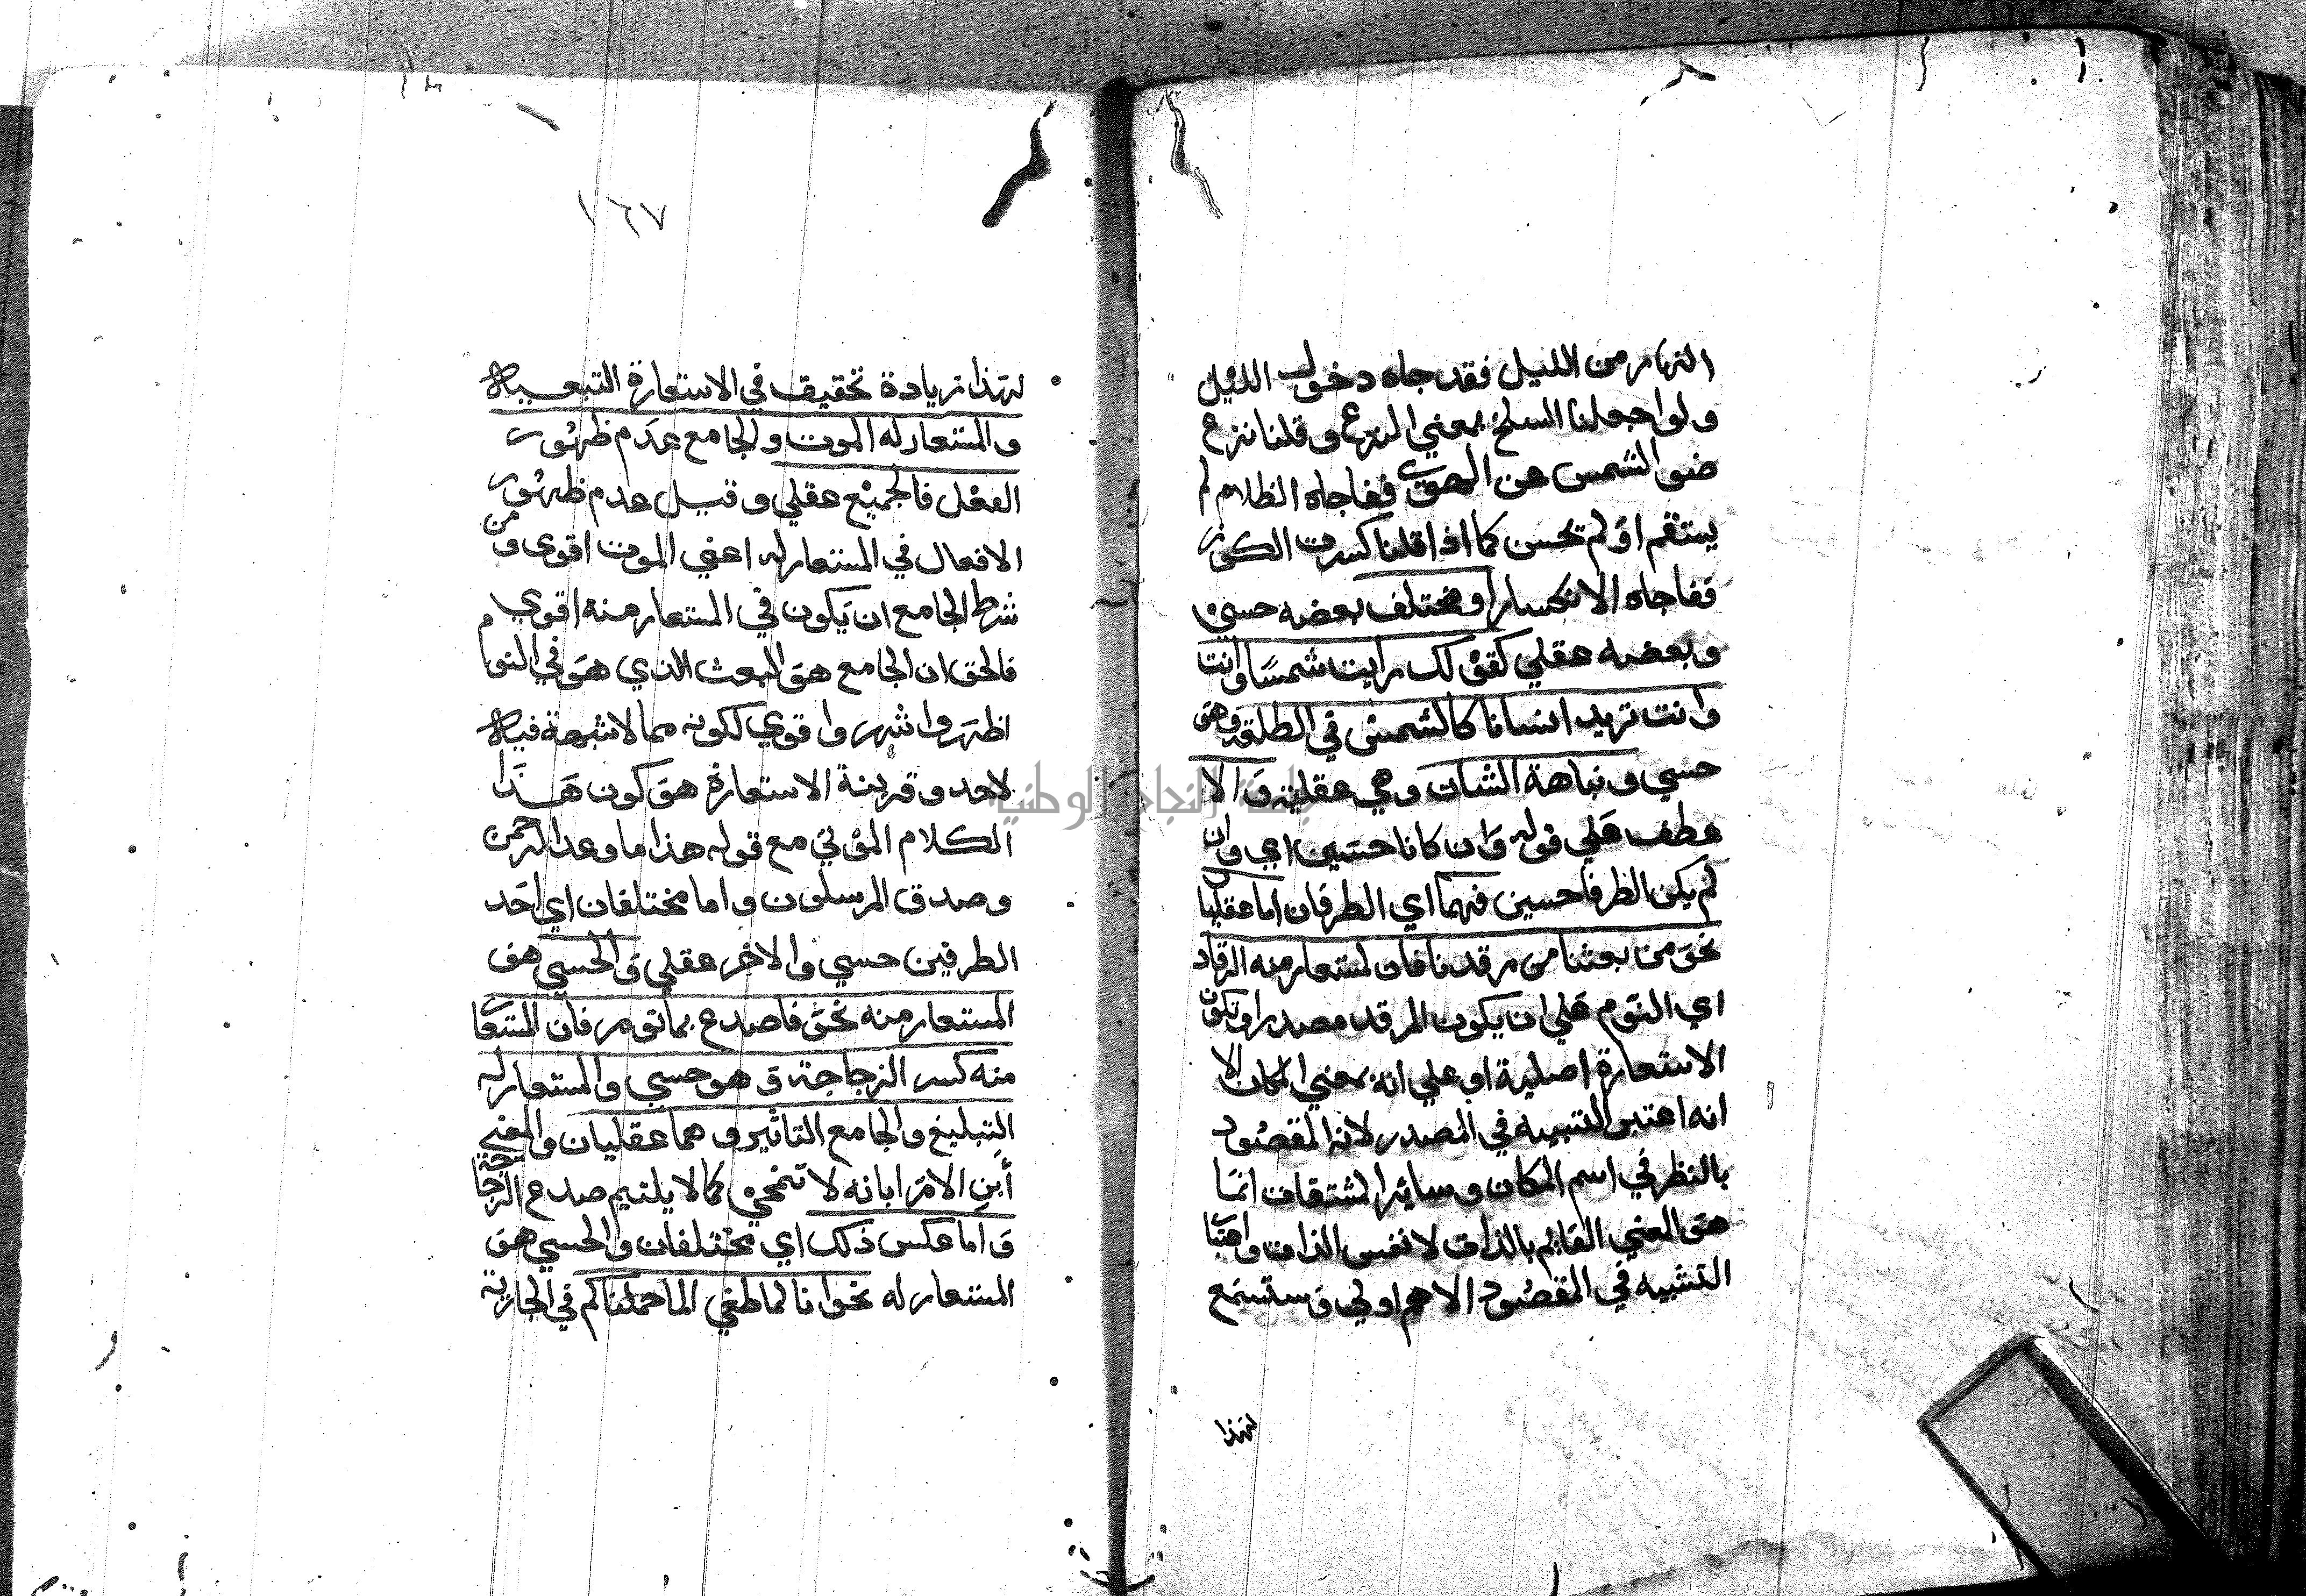 النهار من الليل فقد جاه دخول الليل
ولوا جعلنا السلخ بمعني النزع وقلنا نزع
ضوا الشمس عن الهوي ففاجاه الظلام لم
يستقم او لم تحسن كما اذا قلنا كسرت الكوز
ففاجاه الانكسار او مختلف بعضه حسي
وبعضه عقلي كقولك رايت شمسًا وانت
وانت تريد انسانا كالشمس في الطلعة وهو
حسي ونباهة الشان وهي عقلية والا
عطف علي قوله وان كانا حسين اي وان
لم يكن الطرفا حسين فهما اي الطرفان اما عقليا
نحو من بعثنا من مرقدنا فان لمستعار منه الرقاد
اي النوم علي ان يكون المرقد مصدرا وتكون
الاستعارة اصلية او علي انه بمعني المكان الا
انه اعتبر التشبيه في المصدر لانه المقصود
بالنظر في اسم المكان وساير المشتقات انما
هو المعني القايم بالذات لا نفس الذات واعتبا
التشبيه في المقصود الاهم اولي وستسمع
لهذا
١٦٧
لهذا زيادة تحقيق في الاستعارة التبعيه
والمستعار له الموت والجامع عدم ظهور
الفعل فالجميع عقلي وقيل عدم ظهور
الافعال في المستعار له اعني الموت اقوي ومن
شرط الجامع ان يكون في المستعار منه اقوي
فالحق ان الجامع هو البعث الذي هو في النوم
اظهر واشهر واقوي لكونه مما لا شبهة فيه
لاحد وقرينة الاستعارة هو كون هذا
الكلام الموتي مع قوله هذا ما وعد الرحمن
وصدق المرسلون واما مختلفان اي احد
الطرفين حسي والاخر عقلي والحسي هو
المستعار منه نحو فاصدع بما تومر فان المستعا
منه كسر الزجاجة وهو حسي والمستعار له
التبليغ والجامع التاثير وهما عقليان والمعني
أبن الامر ابانه لا تنمحي كما لا يلتيم صدع الزجاجة
واما عكس ذلك اي مختلفان والحسي هو
المستعار له نحو انا لما طغي الما حملناكم في الجارية